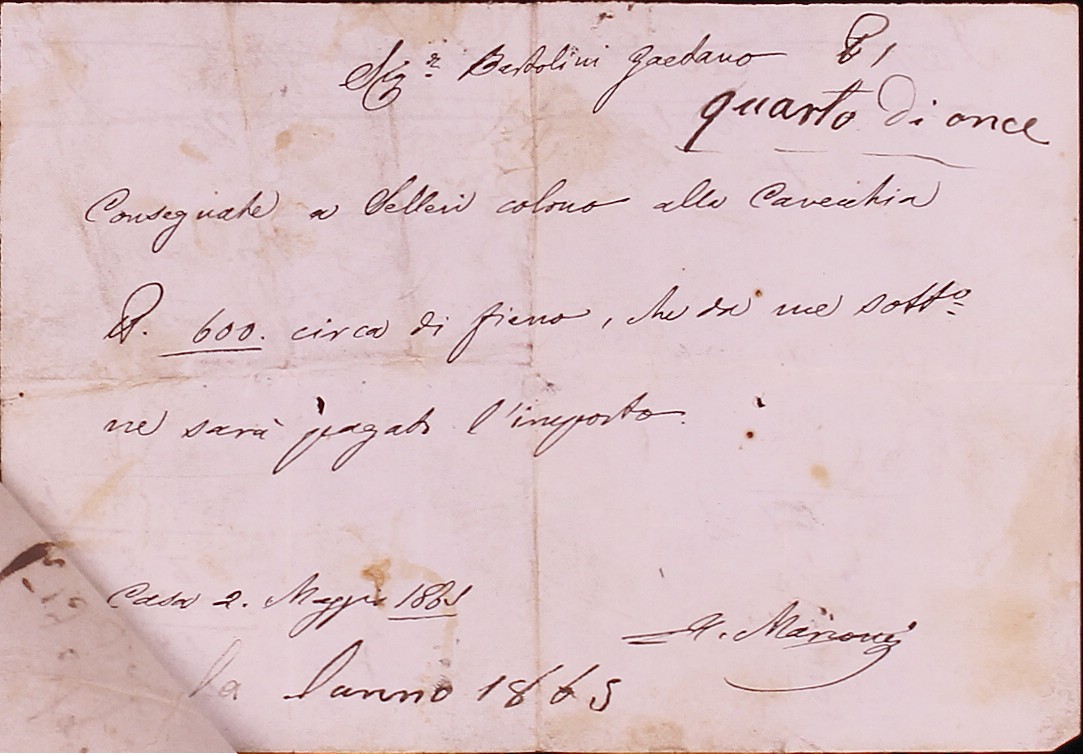 Sig.r Bartolini Gaetano
quarto di once
Consegnate a Selleri colono alla Cavecchia
600. circa di fieno, che da me sotto
ne sarà pagato l'importo.
Casa 2. Maggio 1865
la lanno 1865